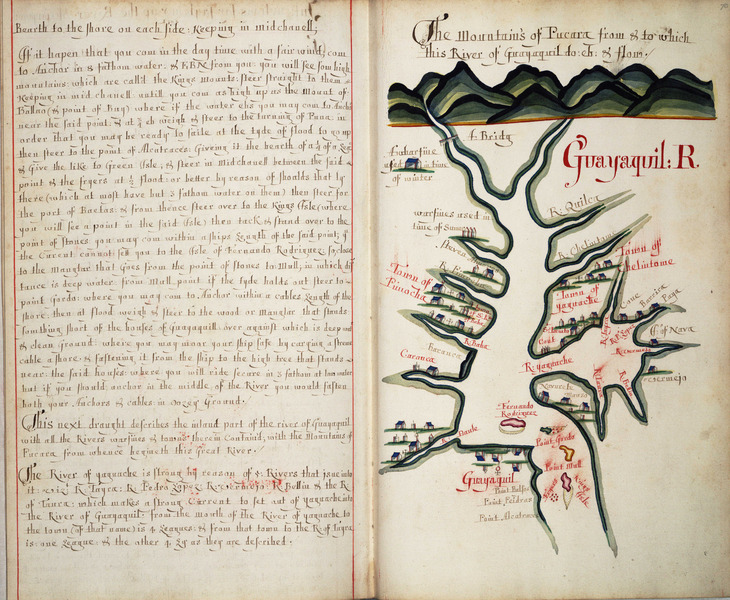 Bearth to the shore on each side: Keeping in midchanell;
If it hapen that you com in the day time with a fair wind, com
to Anchor in 8 fatham water: & EBE from you: you will see som high
mountains which are call'd the Kings mounts: steer straight to them
Keeping in mid chanell untill you com as high up as the Mount of
Ballao (& point of Bay) where if the water ebs you may com to Anchor
near the said point: & at ½ eb weigh & steer to the turning of Puna in
order that you may be ready to saile at the tyde of flood to go up
then steer to the point of Alcatraces: Giving it the bearth of a ¼ of a Leg
& Give the like to Green Isle, & steer in midchanell between the said
point & the fryers at ½ flood: or better by reason of shoalds that ly
there (which at most have but 3 fathom water on them) then steer for
the port of Baebas: & from thence steer over to the Kings Isle (where
you will see a point in the said Isle) then tack & stand over to the
point of stones you may com within a ships Length of the said point; if
the Current cannot sett you to the Isle of Fernando Rodriguez, so close
to the Manglar that Goes from the point of stones to Mall, in which dis
tance is deep water: from Mall point if the tyde holds out steer to
point Gordo: where you may com to Anchor within a cables Length of the
shore, then at flood weigh & steer to the wood or manglar that stands
somthing short of the houses of Guayaquill over against which is deep water
& clean Ground: where you may moar your ship safe by carying a streem
cable a shore: & fastening it from the ship to the high tree that stands
near the said houses where you will ride secure in 3 fathom at low water
but if you should anchor in the middle of the River you would fasten
both your Anchors & cables in oazey Ground.
This next draught describes the inland part of the river of Guayaquil
with all the Rivers warfues & towns therein Contain'd, with the Mountains of
Pucara from whence begineth this Great River.
The River of yaguache is strong by reason of 4 Rivers that isue into
it: viz: R. Tayra; R. Pedro Lopez; R. vermejo; R. Bollin & the R
of Taura: which makes a strong Current to set out of yaguache into
the River of Guayaquil: from the mouth of the River of yaguache to
the town (of that name) is 4 Leagues: & from that town to the R of tayra
is one League: & the other 4 Lg as they are described.
70
The Mountains of Pucara from & to which
this River of Guayaquil do: eb: & flow.
A Bridg
Guayaquil: R.
used in time
of winter
R. Quilca
warfues used in
time of Summer
R. Chelintome
Town of
Chelintome
Town of
Pinocha
Town of
yaguache
Cuue
Barrica
Paya
C: of Nava
R. Baba
Baranca
Caranca
R: yaguache
vermejo
Fernando
Rodriguez
R. Daule
Point Gordo
Guayaquil
Point Mall
Point Pedras
Point Alcatraces
Kings
Isle